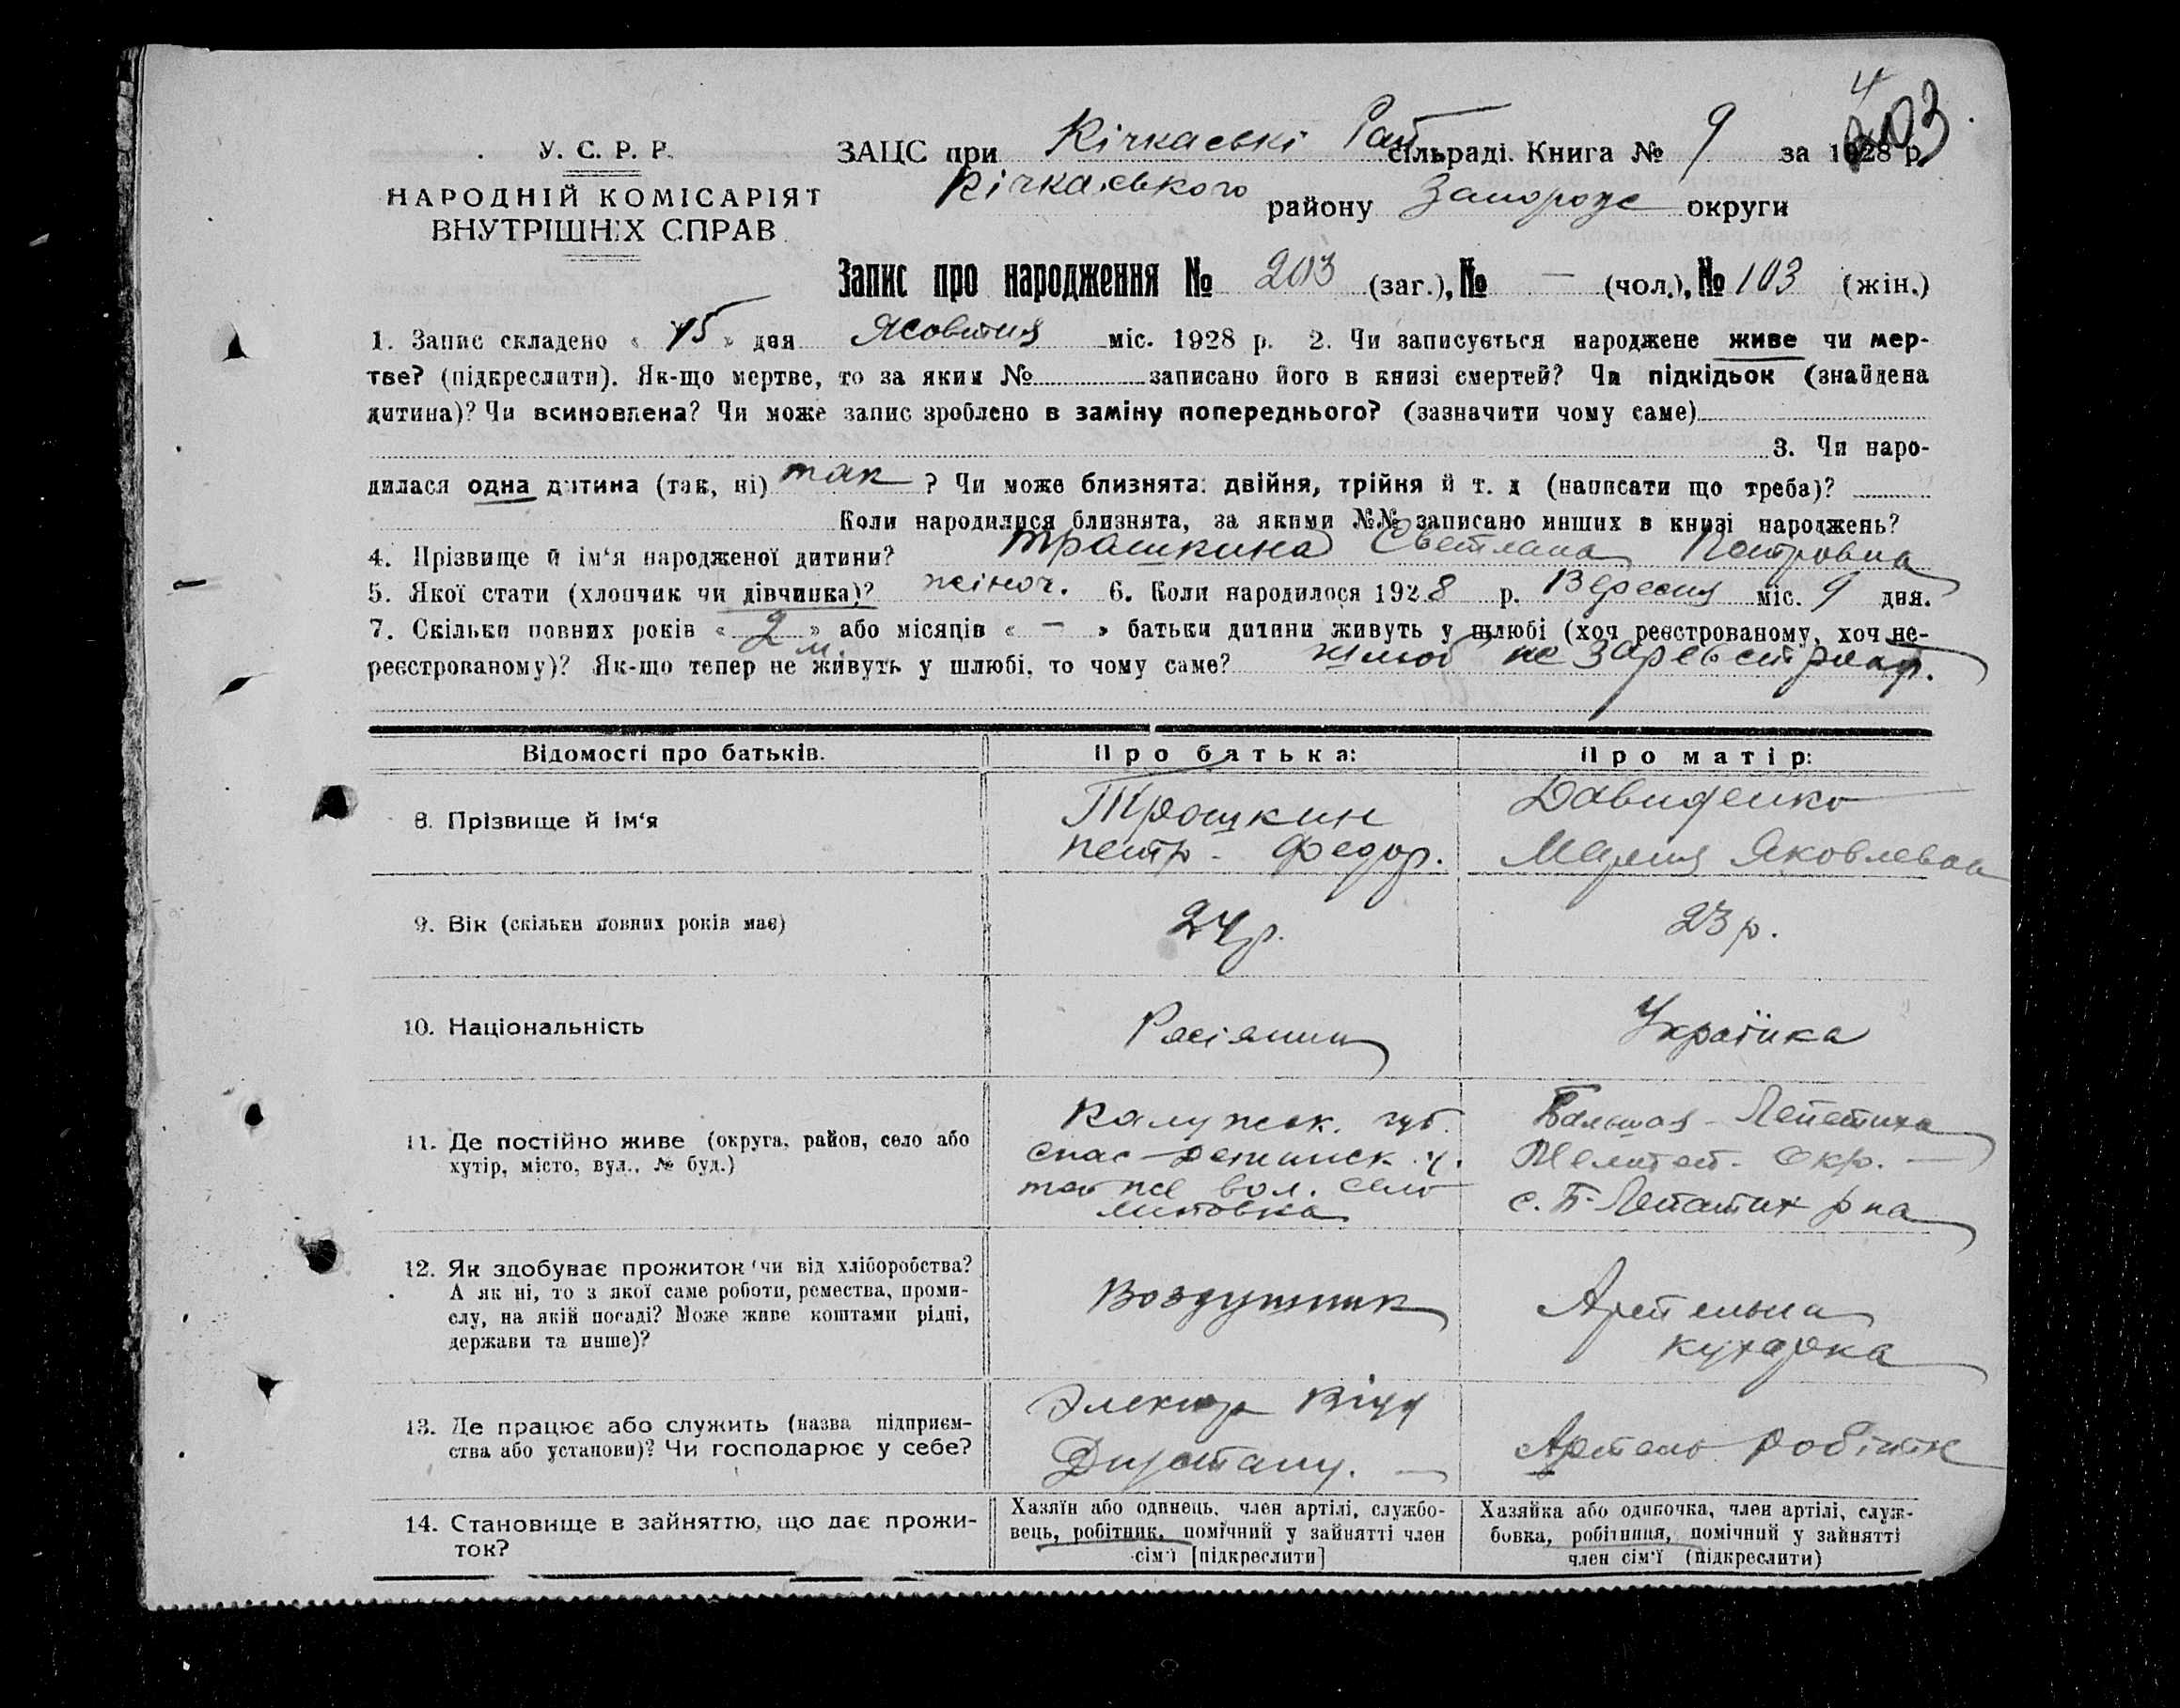 4
403
У. С. Р. Р.
НАРОДНІЙ КОМІСАРІЯТ
ВНУТРІШНІХ СПРАВ
ЗАЦС при Кічкаські Рай сільраді. Книга № 9 за 1928 р.
Кічкаського району Запорозс округи
Запис про народження № 203 (заг.), № — (чол.), № 103 (жін.)
1. Запис складено « 15 » дня Жовтня міс. 1928 р. 2. Чи записується народжене живе чи мер-
тве? (підкреслити). Як-що мертве, то за яким № записано його в книзі смертей? Чи підкідьок (знайдена
дитина)? Чи всиновлена? Чи може запис зроблено в заміну попереднього? (зазначити чому саме)
3. Чи наро-
дилася одна дитина (так, ні) так ? Чи може близнята: двійня, трійня й т. д (написати що треба)?
Коли народилися близнята, за якими №№ записано инших в книзі народжень?
4. Прізвище й ім'я народженої дитини? Трашкина Светлана Петровна
5. Якої стати (хлопчик чи дівчинка)? жіноч. 6. Коли народилося 1928 р. Вересня міс. 9 дня.
7. Скільки повних років « 2 » або місяців « — » батьки дитини живуть у шлюбі (хоч реєстрованому, хоч не-
реєстрованому)? Як-що тепер не живуть у шлюбі, то чому саме? шлюб не
Відомості про батьків. Про батька: Про матір:
8. Прізвище й ім'я
Трошкин
Петр - Федор.
Давиденко
Мария Яковлевна
9. Вік (скільки повних років має) 24 р. 23 р.
10. Національність Росіянин Українка
11. Де постійно живе (округа, район, село або
хутір, місто, вул., № буд.)
Калужск. губ.
Спас-Деминск. у.
той же вол. село
Липовка
Большая - Лепетиха
Мелитоп. Окр. —
с. Б-Лепатих р на
12. Як здобуває прожиток (чи від хліборобства?
А як ні, то з якої саме роботи, ремества, проми-
слу, на якій посаді? Може живе коштами рідні,
держави та инше)?
Воздушник
Артельна
кухарка
13. Де працює або служить (назва підприєм-
ства або установи)? Чи господарює у себе?
Електр Відд
Артель робітн
14. Становище в зайняттю, що дає прожи-
ток?
Хазяїн або одинець, член артілі, службо-
вець, робітник, помічний у зайнятті член
сім'ї [підкреслити]
Хазяйка або одиночка, член артілі, служ-
бовка, робітниця, помічний у зайнятті
член сім'ї (підкреслити)